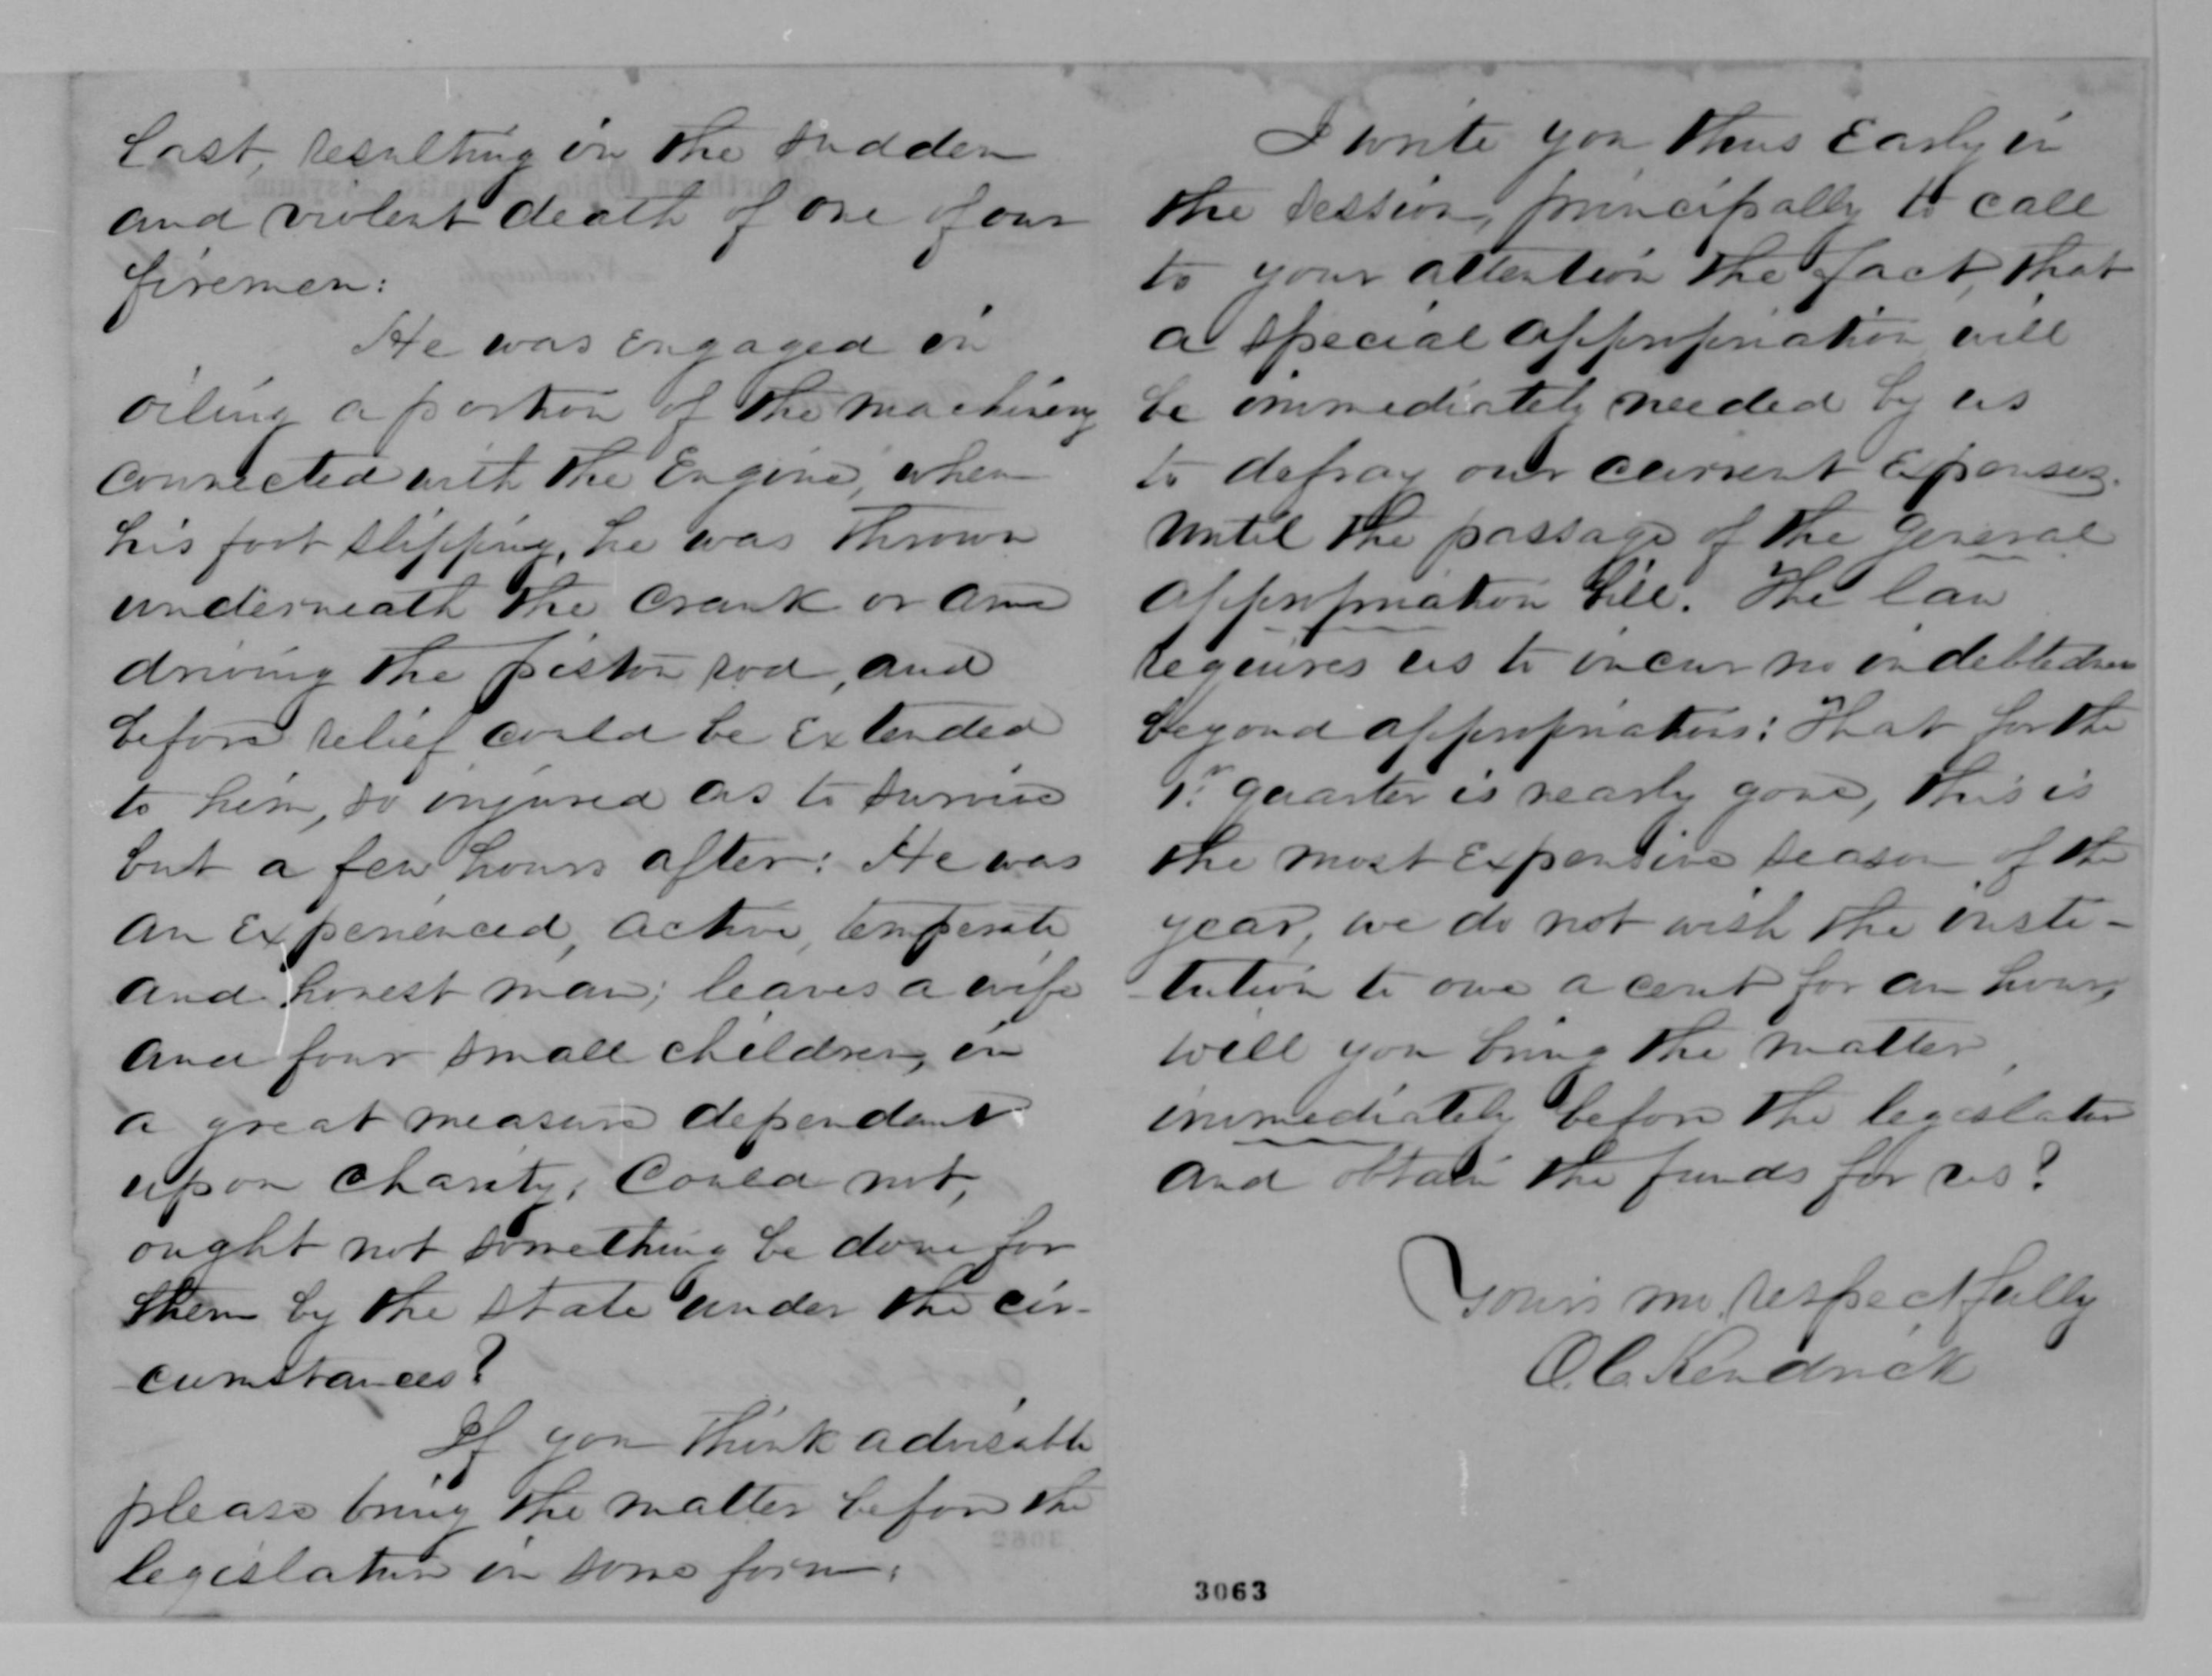 last, resulting in the sudden
and violent death of one of our
firemen:
He was engaged in
oiling a portion of the machinery
connected with the Engine, when
his foot slipping, he was thrown
underneath the crank or arm
driving the piston rod, and
before relief could be extended
to him, so injured as to survive
but a few hours after: He was
an experienced, active, temperate
and honest man; leaves a wife
and four small children, in
a great measure dependant
upon charity. Could not,
ought not something be done for
them by the state under the cir-
cumstances?
If you think advisable
please bring the matter before the
legislature in some form.
I write you thus Early in
the session, principally to call
to your attention the fact, that
a special appropriation will
be immediately needed by us
to defray our current expenses.
until the passage of the general
appropriation bill. The law
requires us to incur no indebtedness
beyond appropriations: That for the
1st quarter is nearly gone, this is
the most expensive season of the
year, we do not wish the insti-
-tution to owe a cent for an hour,
will you bring the matter
immediately before the legislature
and obtain the funds for us?
Yours mo. respectfully
O. C. Kendrick
3063